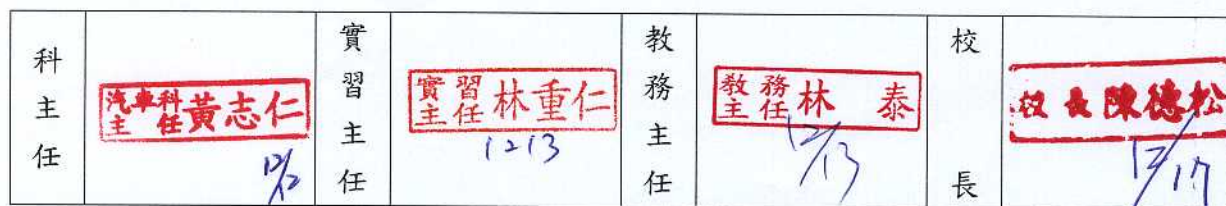 科主任
汽車科
主任 黃志仁
12/12
實習主任
實習
主任 林重仁
1213
教務主任
教務
主任 林泰
12/13
校長
校長陳德松
12/17